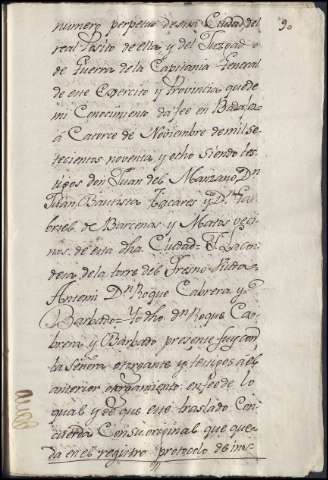 90
numero perpetuo de esta Ciudad, del
real Posito de ella, y del Juzgado
de Guerra de la Capitania General
de este Exercito y Provincia, que de
mi Conocimiento da fee en Badajoz
a Catorce de Noviembre de mil se-
tecientos noventa y ocho siendo tes-
tigos don Juan del Manzano, Dn
Juan Bautista Tacares y Dn Ga-
briel de Barcenas y Matos veci
nos de esta dha Ciudad = La Con
desa de la torre del Fresno Viuda =
Antemi Dn Roque Cabrera y
Barbado = Yo dho Dn Roque Ca-
brera y Barbado presente fuy con
la Señora otorgante y testigos a el
anterior otorgamiento en fee de lo
qual y de que este traslado Con
cuerda Con su original que que-
da en el registro protocolo de ins-